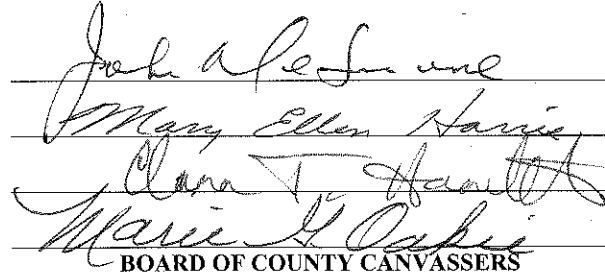 John
Mary Ellen Harrie
Clara T.
Marie G. Oakie
BOARD OF COUNTY CANVASSERS